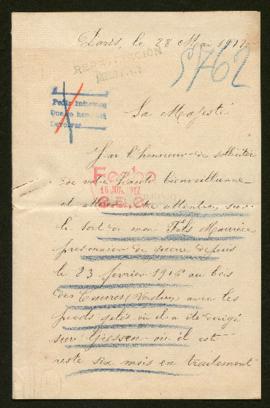 Paris, le 28 Mai 1917
5762
Pedir informes
Sa Majesté
J'ai l'honneur de solliciter
de votre haute bienveillance
Fecho
16 JUN. 917
le sort de mon Fils Maurice
prisonnier de guerre depuis
le 23 février 1916 au bois
des Caures, Verdun, avec les
pieds gelés où il a été dirigé
sur Giessen où il est
resté six mois en traitement